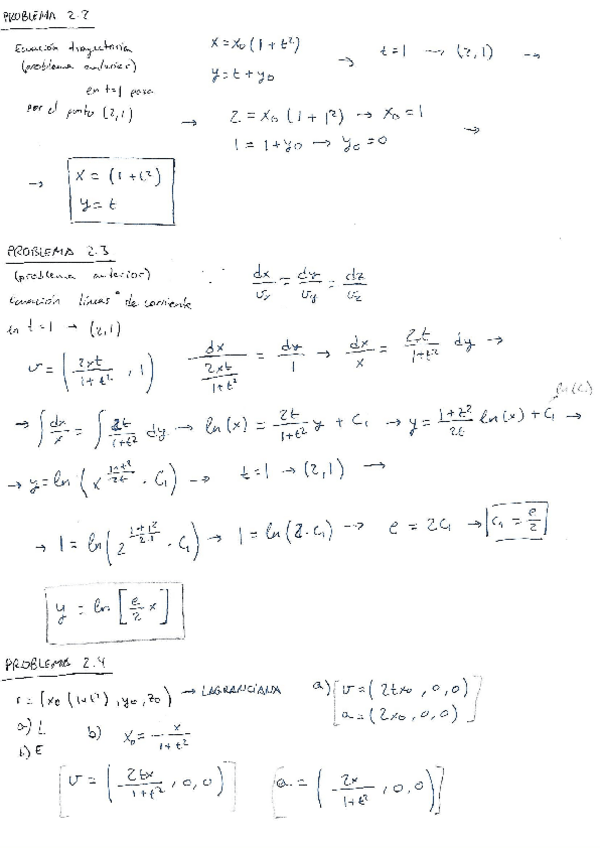 PROBLEMA 2.2
Ecuación trayectoria
(problema anterior)
en t=1 pasa
por el punto (2,1)
x = x₀(1+t²)
y = t + y₀
→ t=1 → (2,1) →
→ 2 = x₀(1+1²) → x₀=1
1 = 1+y₀ → y₀=0 →
→ x = (1+t²)
y = t
PROBLEMA 2.3
(problema anterior) dx/vx = dy/vy = dz/vz
Ecuación líneas de corriente
en t=1 → (2,1)
v = (2xt/(1+t²), 1) dx/(2xt/(1+t²)) = dy/1 → dx/x = 2t/(1+t²) dy →
→ ∫dx/x = ∫2t/(1+t²) dy → ln(x) = 2t/(1+t²) y + C₁ → y = (1+t²)/2t ln(x) + C₁ → ln(C₁)
→ y = ln(x^((1+t²)/2t) · C₁) → t=1 → (2,1) →
→ 1 = ln(2^((1+1²)/2·1) · C₁) → 1 = ln(2·C₁) → e = 2C₁ → C₁ = e/2
y = ln[e/2 x]
PROBLEMA 2.4
r = (x₀(1+t²), y₀, z₀) → LAGRANGIANA
a) L
b) E
a) v = (2tx₀, 0, 0)
a = (2x₀, 0, 0)
b) x₀ = x/(1+t²)
v = (2tx/(1+t²), 0, 0) a = (2x/(1+t²), 0, 0)